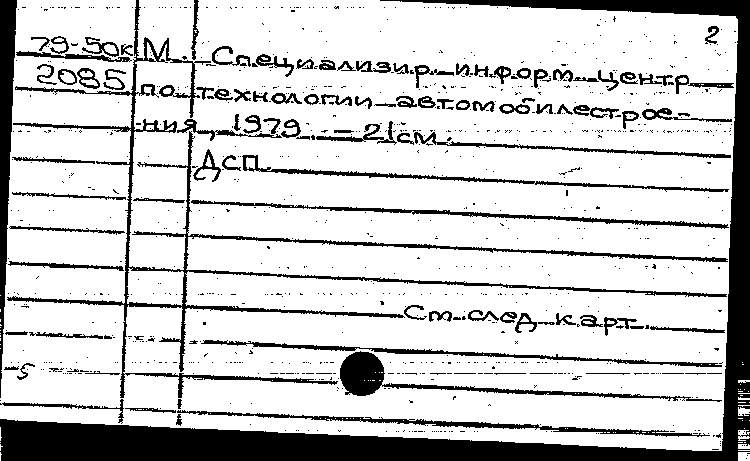 2
79-50к М. : Специализир. информ. центр
2085 по технологии автомобилестрое-
ния, 1979. - 21 см.
Дсп.
См. след. карт.
5